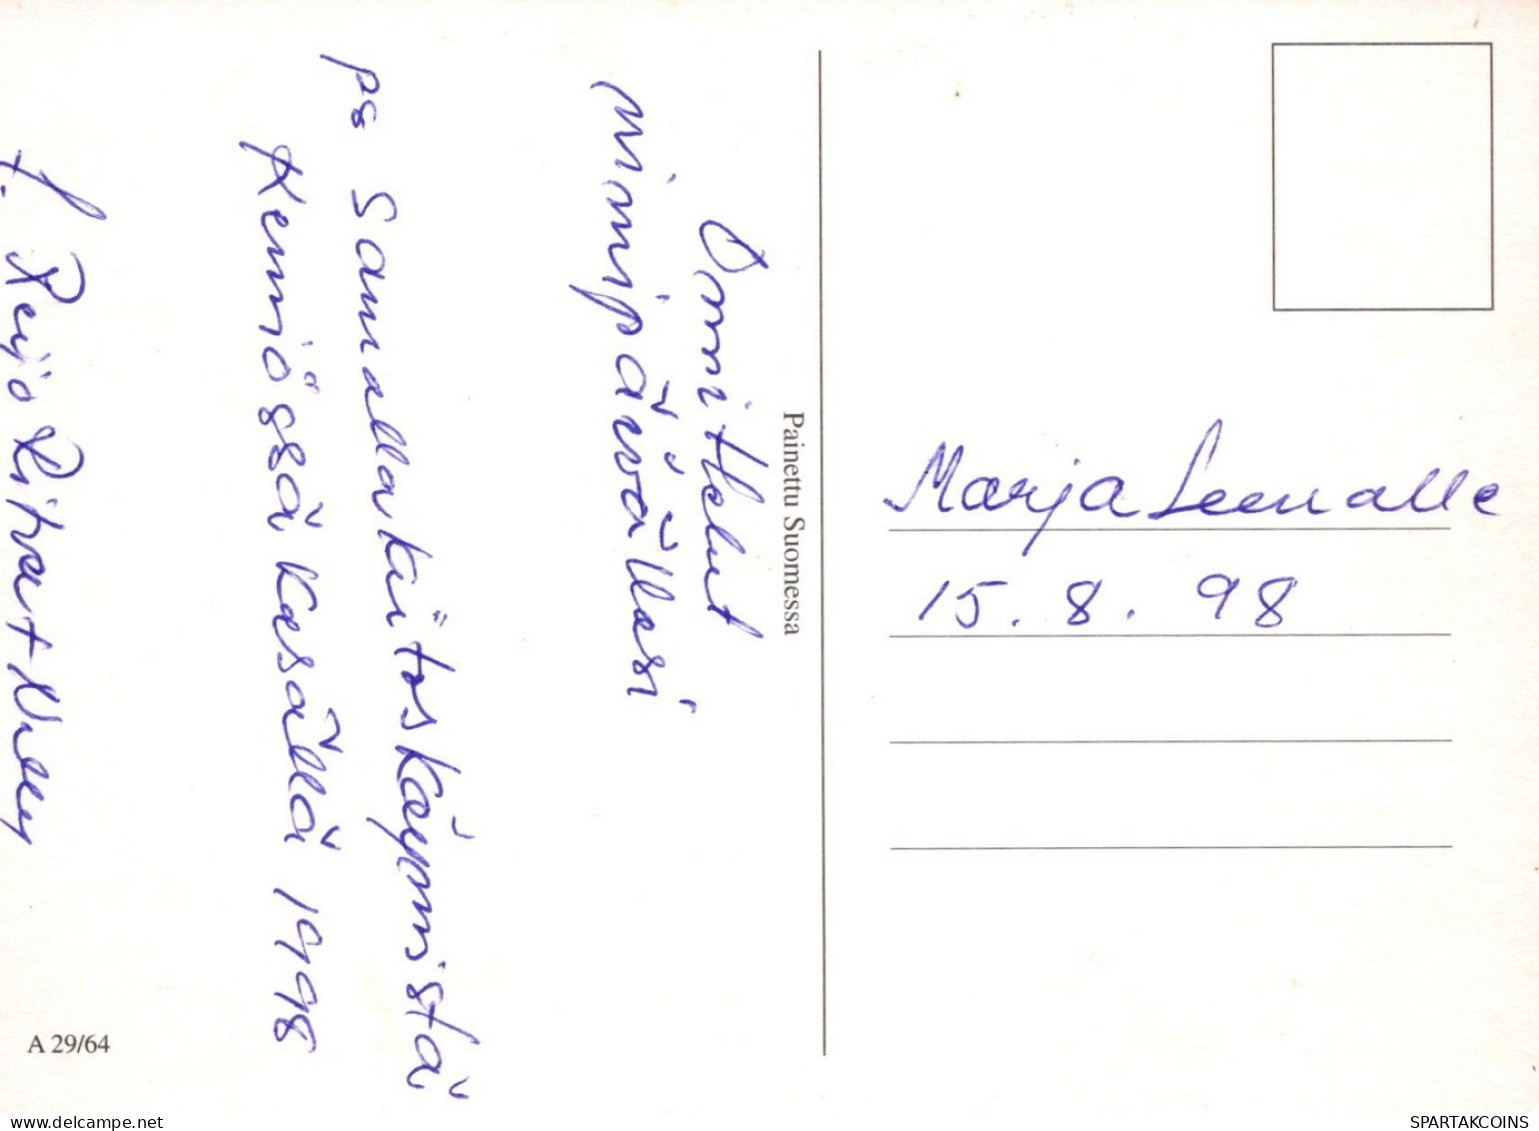 Onnittelut
nimipäivällesi
ps Samalla kiitos käynnistä
Kemiössä kesällä 1998
t. Reijo Ritva +
Painettu Suomessa
Marja Leenalle
15.8.98
A 29/64
delcampe.net
SPARTAKCOINS